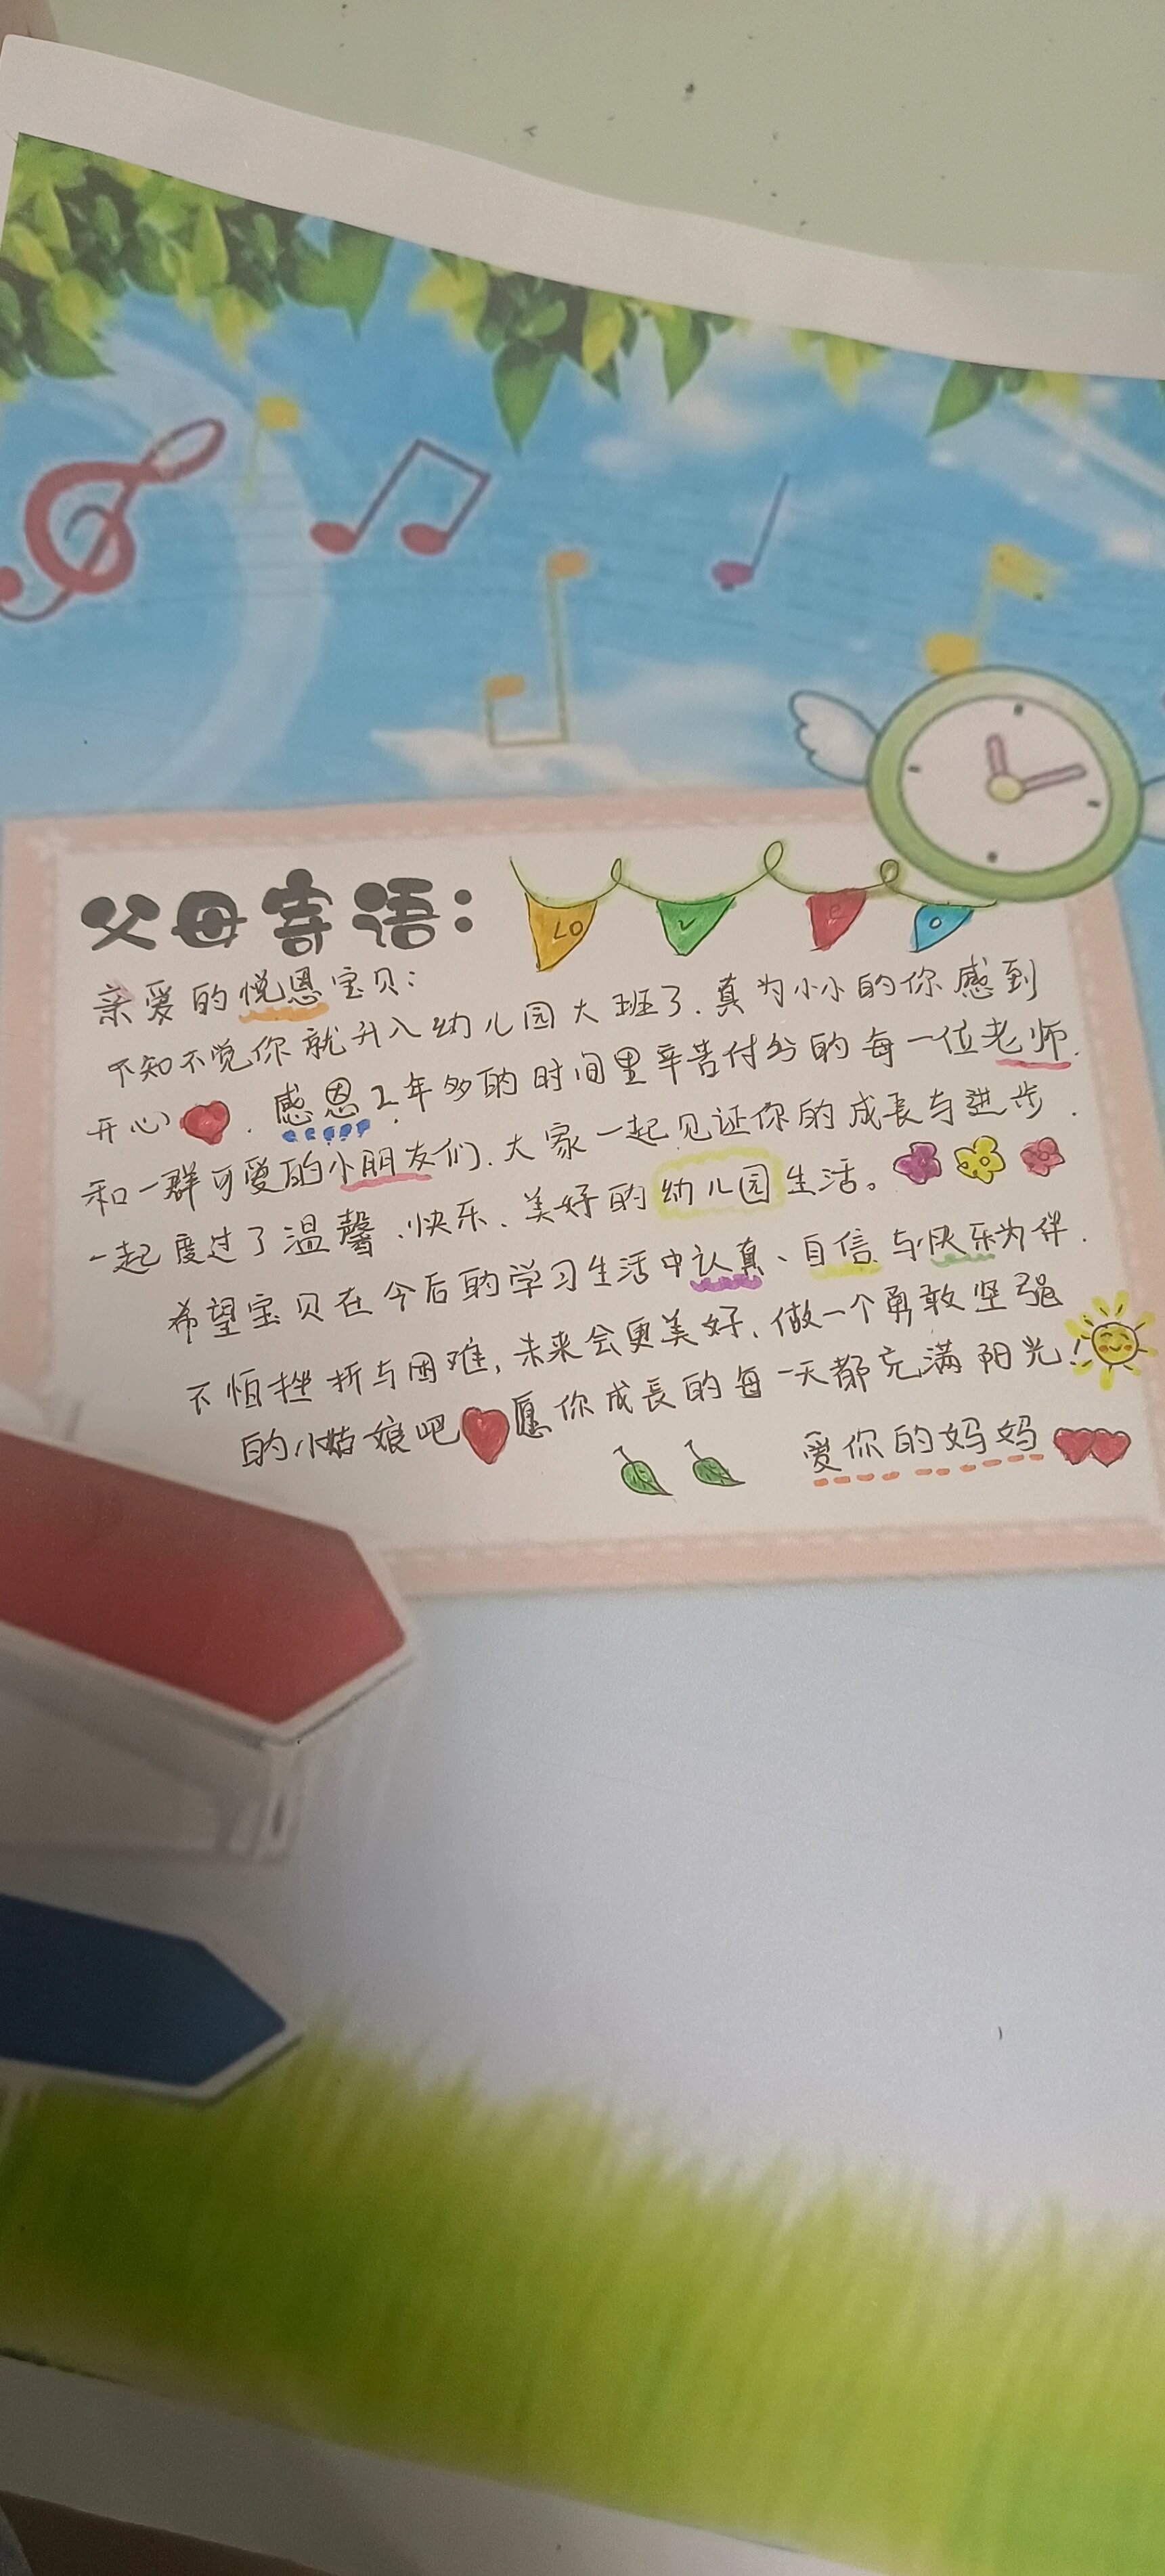 父母寄语:
LO V E O
亲爱的悦恩宝贝:
不知不觉你就升入幼儿园大班了.真为小小的你感到
开心.感恩2年多的时间里辛苦付出的每一位老师.
和一群可爱的小朋友们.大家一起见证你的成长与进步.
一起度过了温馨、快乐、美好的幼儿园生活。
希望宝贝在今后的学习生活中认真、自信与快乐为伴.
不怕挫折与困难,未来会更美好.做一个勇敢坚强
的小姑娘吧愿你成長的每一天都充满阳光!
爱你的妈妈